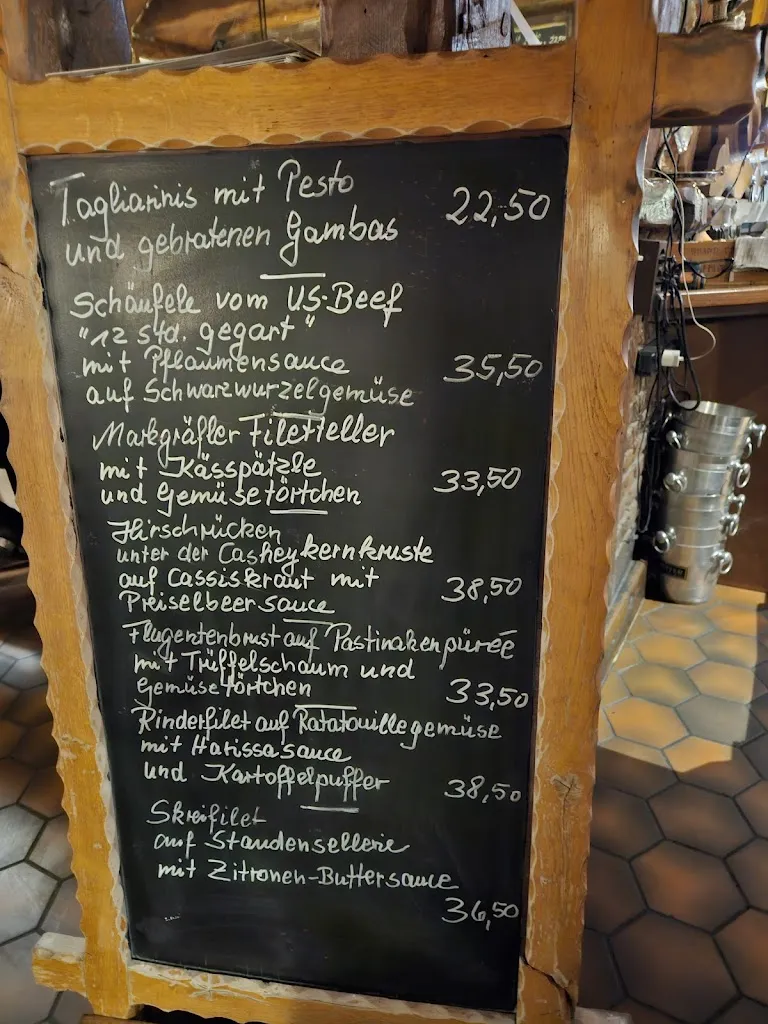 Tagliarinis mit Pesto
und gebratenen Gambas 22,50
Schäufele vom US-Beef
"12 Std. gegart"
mit Pflaumensauce 35,50
auf Schwarzwurzelgemüse
Markgräfler Filetteller
mit Kässpätzle 33,50
und Gemüsetörtchen
Hirschrücken
unter der Casheykernkruste
auf Cassiskraut mit 38,50
Preiselbeersauce
Flugentenbrust auf Pastinakenpüreé
mit Trüffelschaum und
Gemüsetörtchen 33,50
Rinderfilet auf Ratatouillegemüse
mit Harissasauce
und Kartoffelpuffer 38,50
Skreifilet
auf Staudensellerie
mit Zitronen-Buttersauce
36,50